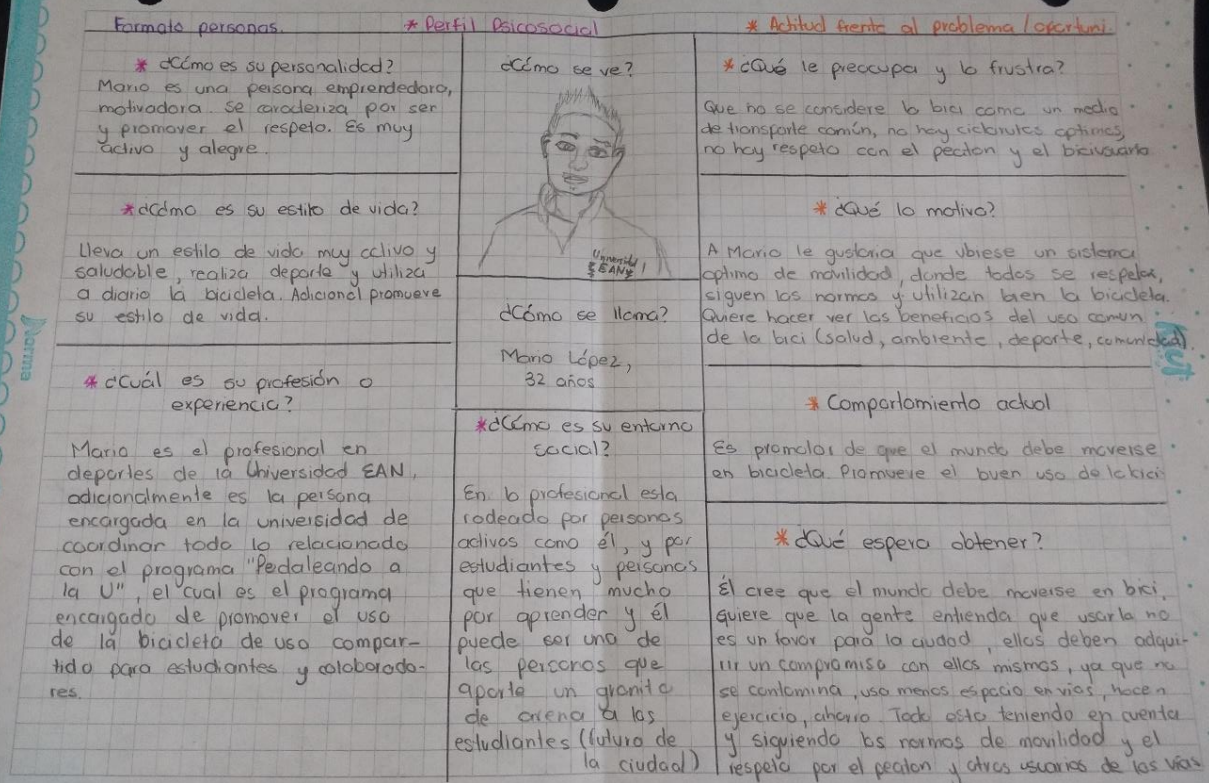 Formato personas.
* Perfil Psicosocial
* Actitud frente al problema / oportuni.
* ¿Cómo es su personalidad?
Mario es una persona emprendedora,
motivadora. Se caracteriza por ser
y promover el respeto. Es muy
activo y alegre.
* ¿Cómo es su estilo de vida?
Lleva un estilo de vida muy activo y
saludable, realiza deporte y utiliza
a diario la bicicleta. Adicional promueve
su estilo de vida.
* ¿Cuál es su profesión o
experiencia?
Mario es el profesional en
deportes de la Universidad EAN,
adicionalmente es la persona
encargada en la universidad de
coordinar todo lo relacionado
con el programa "Pedaleando a
la U", el cual es el programa
encargado de promover el uso
de la bicicleta de uso compar-
tido para estudiantes y colaborado-
res.
¿Cómo se ve?
Universidad
EAN
¿Cómo se llama?
Mario López,
32 años
* ¿Cómo es su entorno
social?
En lo profesional esta
rodeado por personas
activas como él, y por
estudiantes y personas
que tienen mucho
por aprender y él
puede ser una de
las personas que
aporte un granito
de arena a los
estudiantes (futuro de
la ciudad)
* ¿Qué le preocupa y lo frustra?
Que no se considere la bici como un medio
de transporte común, no hay ciclorutas optimas,
no hay respeto con el peaton y el biciusuario
* ¿Qué lo motiva?
A Mario le gustaria que ubiese un sistema
optimo de movilidad, donde todos se respeten,
siguen las normas y utilizan bien la bicicleta.
Quiere hacer ver los beneficios del uso comun
de la bici (salud, ambiente, deporte, comunidad).
* Comportamiento actual
Es promotor de que el mundo debe moverse
en bicicleta. Promueve el buen uso de la bici
* ¿Qué espera obtener?
Él cree que el mundo debe moverse en bici,
quiere que la gente entienda que usarla no
es un favor para la ciudad, ellos deben adqui-
rir un compromiso con ellos mismos, ya que no
se contamina, usa menos espacio en vias, hacen
ejercicio, ahorro. Todo esto teniendo en cuenta
y siguiendo las normas de movilidad y el
respeto por el peaton y otros usuarios de las vias
Norma